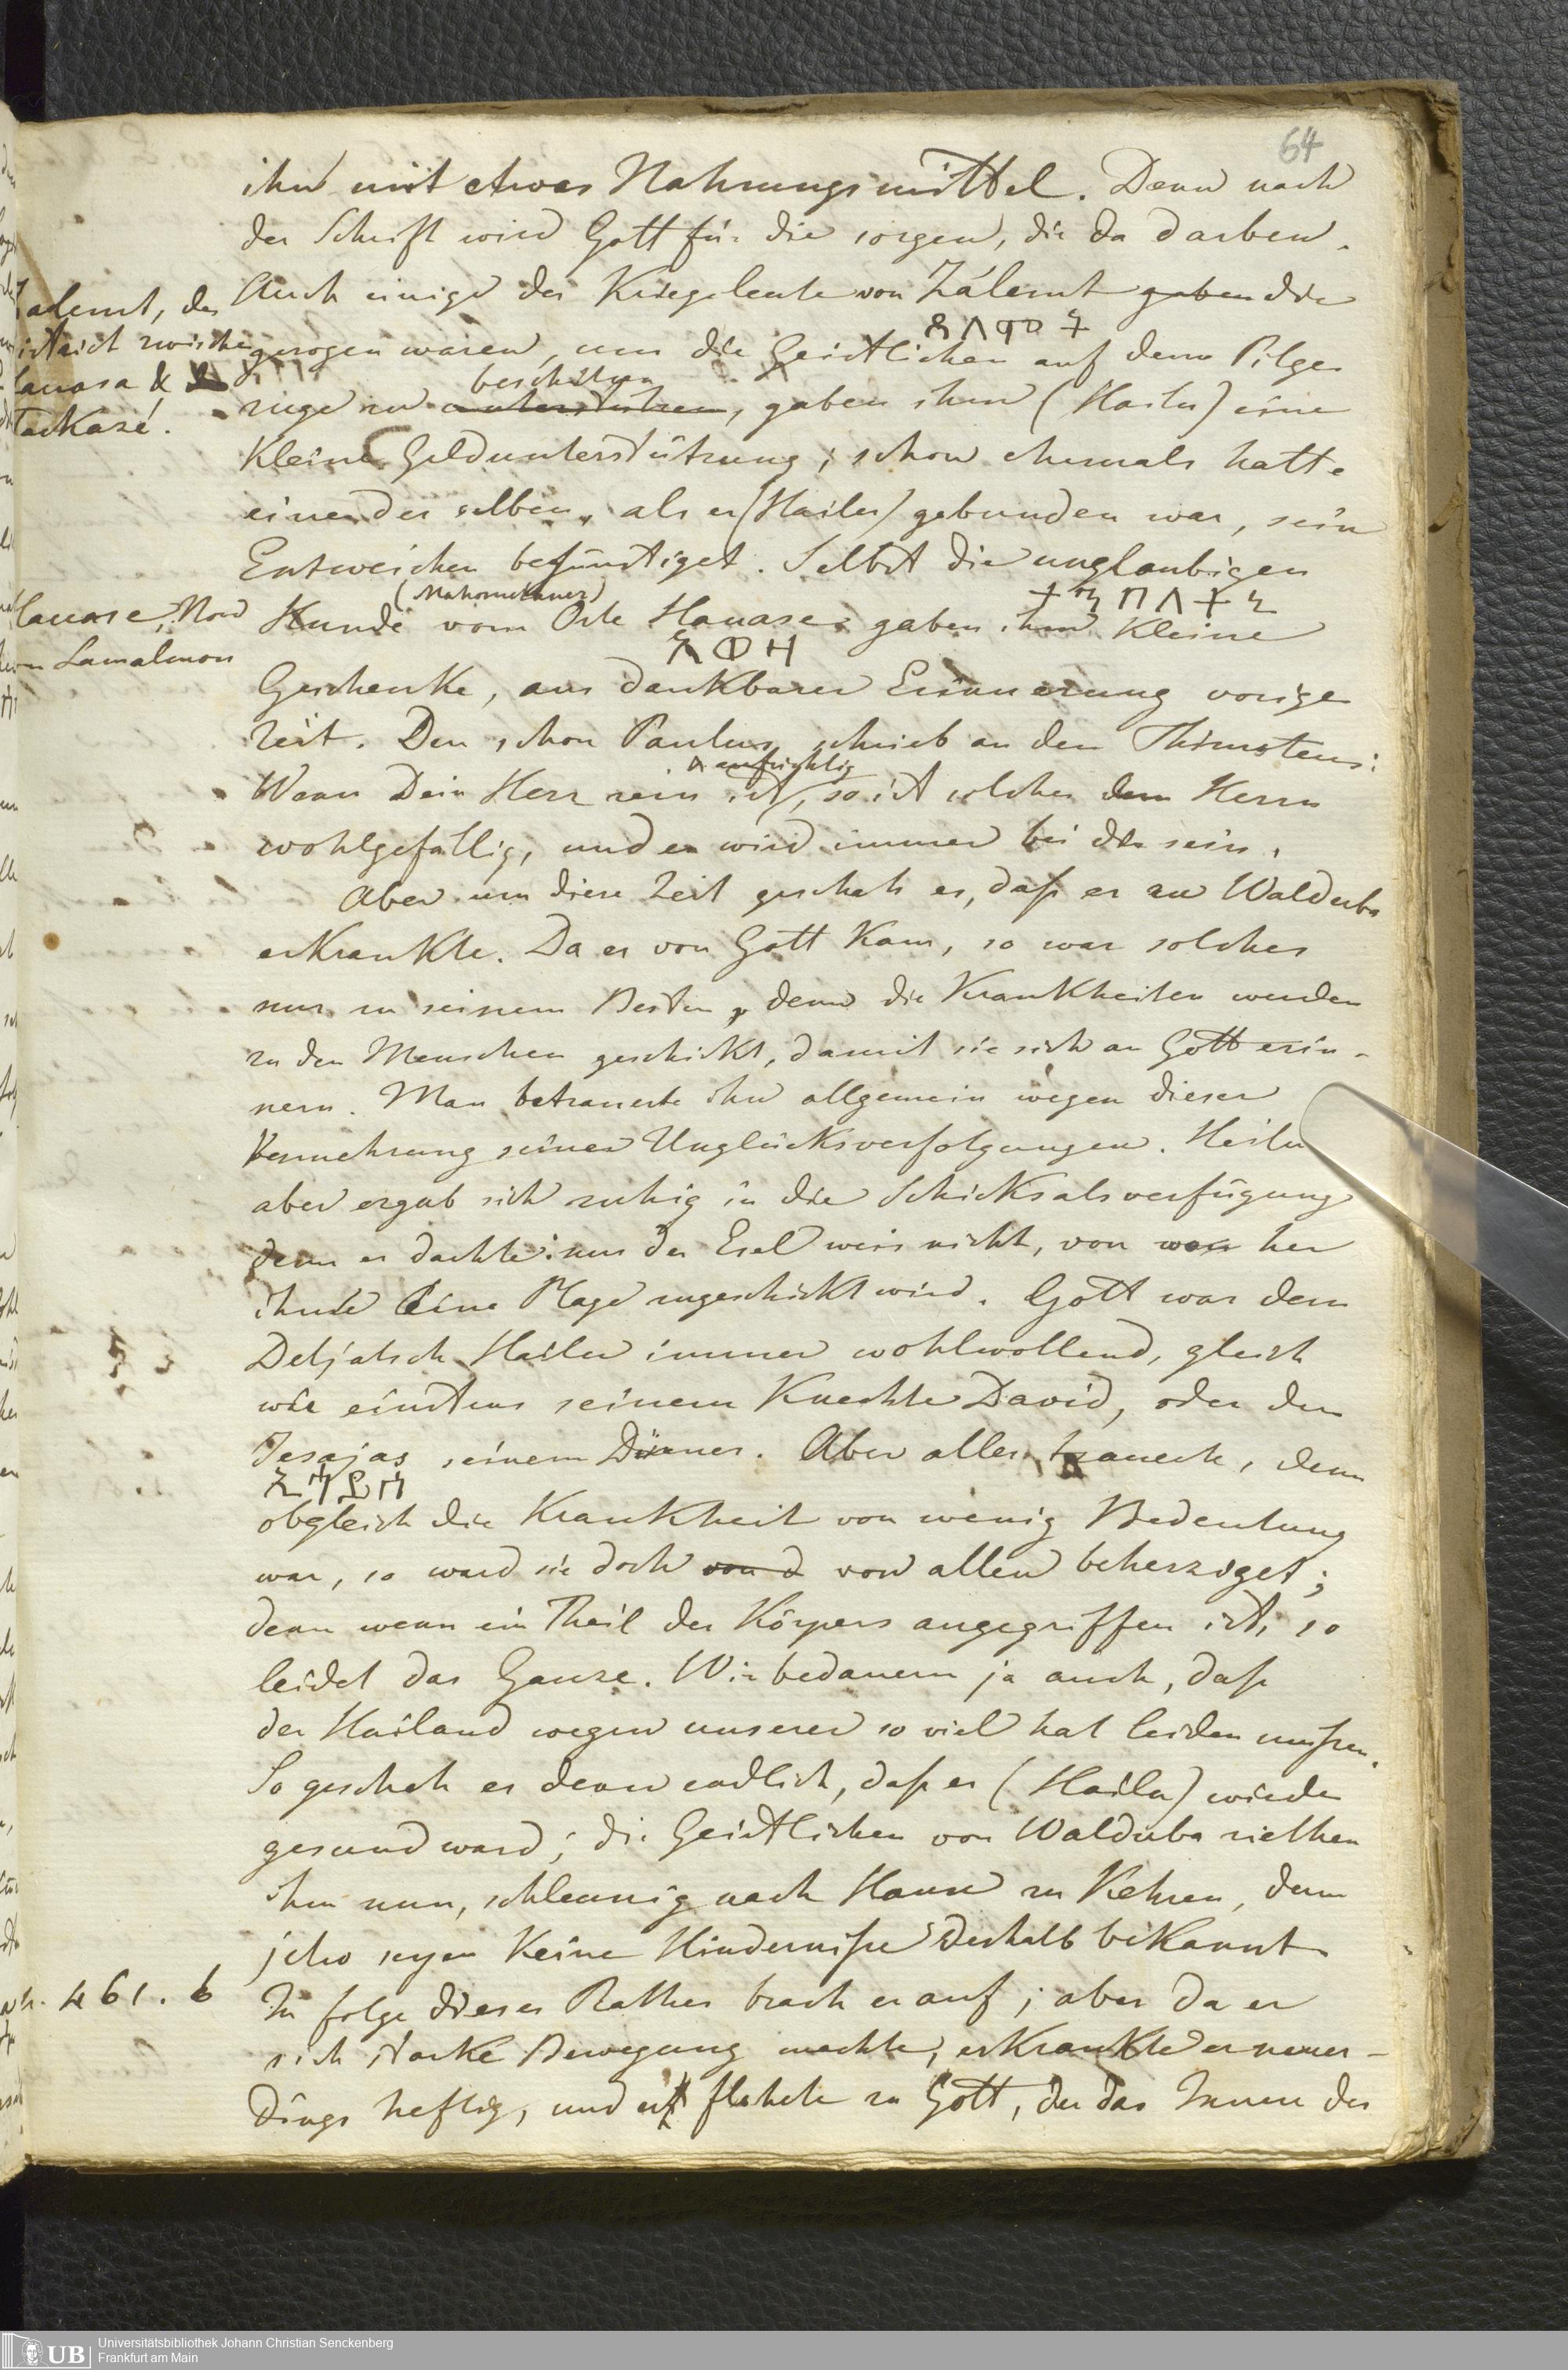 64
ihn mit etwas Nahrungsmittel. Denn nach
der Schrift wird Gott für die sorgen, die da darben.
Auch einige der Kriegsleute von Zálemt gaben die
gezogen waren, um die Geistlichen auf dem Pilger
beschützen
zuge zu unterstützen, gaben ihm (Hailu) eine
Kleine Geldunterstützung; schon ehemals hatte
einer derselben, als er (Hailu) gebunden war, sein
Entweichen begünstiget. Selbst die unglaubigen
(Mahometaner)
Hunde vom Orte Hauase gaben ihm Kleine
Geschenke, aus dankbarer Erinnerung voriger
Zeit. Den schon Paulus schrieb an den Thimoteus:
aufrichtig
Wenn Dein Herz rein ist, so ist solches dem Herrn
wohlgefällig, und er wird immer bei dir sein.
Aber um diese Zeit geschah es, daß er zu Walduba
erkrankte. Da es von Gott Kam, so war solches
nur zu seinem Besten, denn die Krankheiten werden
zu den Menschen geschickt, damit sie sich an Gott erin-
nern. Man betrauerte ihn allgemein wegen dieser
Vermehrung seiner Unglücksverfolgungen. Heilu
aber ergab sich ruhig in die Schicksalsverfügung
denn er dachte: nur der Esel weis nicht, von wo her
ihm eine Plage zugeschickt wird. Gott war dem
Detjatsch Hailu immer wohlwollend, gleich
wie einstens seinem Knechte David, oder dem
Jesajas seinem Diener. Aber alles trauerte, denn
obgleich die Krankheit von wenig Bedeutung
war, so ward sie doch von d von allen beherziget;
denn wenn ein Theil des Körpers angegriffen ist, so
leidet das Ganze. Wir bedauern ja auch, daß
der Hailand wegen unserer so viel hat leiden mußen.
So geschah es denn endlich, daß er (Hailu) wieder
gesund ward; die Geistlichen von Walduba riethen
ihm nun, schleunig nach Hause zu Kehren, denn
jetzo seyen Keine Hinderniße deshalb bekannt
In folge dieses Rathes brach er auf; aber da er
sich starke Bewegung machte, erkrankte er neuer-
dings heftig, und er flehete zu Gott, der das Innere des
alemt, der
istrict zwischen
auasa &
Takazé.
auase, Nord
von Lamalmon
461. b
UB
Universitätsbibliothek Johann Christian Senckenberg
Frankfurt am Main